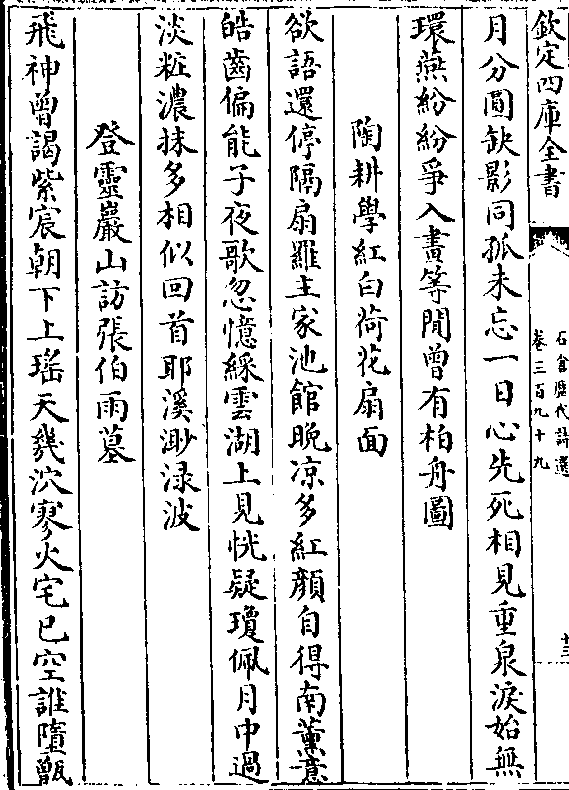 欽定四庫全書
石倉歷代詩選
卷三百九十九
十三
月分圓缺影同孤未忘一日心先死相見重泉淚始無
環燕紛紛爭入畫等閒曾有柏舟圖
陶耕學紅白荷花扇面
欲語還停隔扇羅主家池館晚凉多紅顔自得南薰意
皓齒偏能子夜歌忽憶綵雲湖上見恍疑瓊佩月中過
淡粧濃抹多相似回首耶溪渺渌波
登靈巖山訪張伯雨墓
飛神曾謁紫宸朝下上瑤天幾泬寥火宅已空誰墮甑